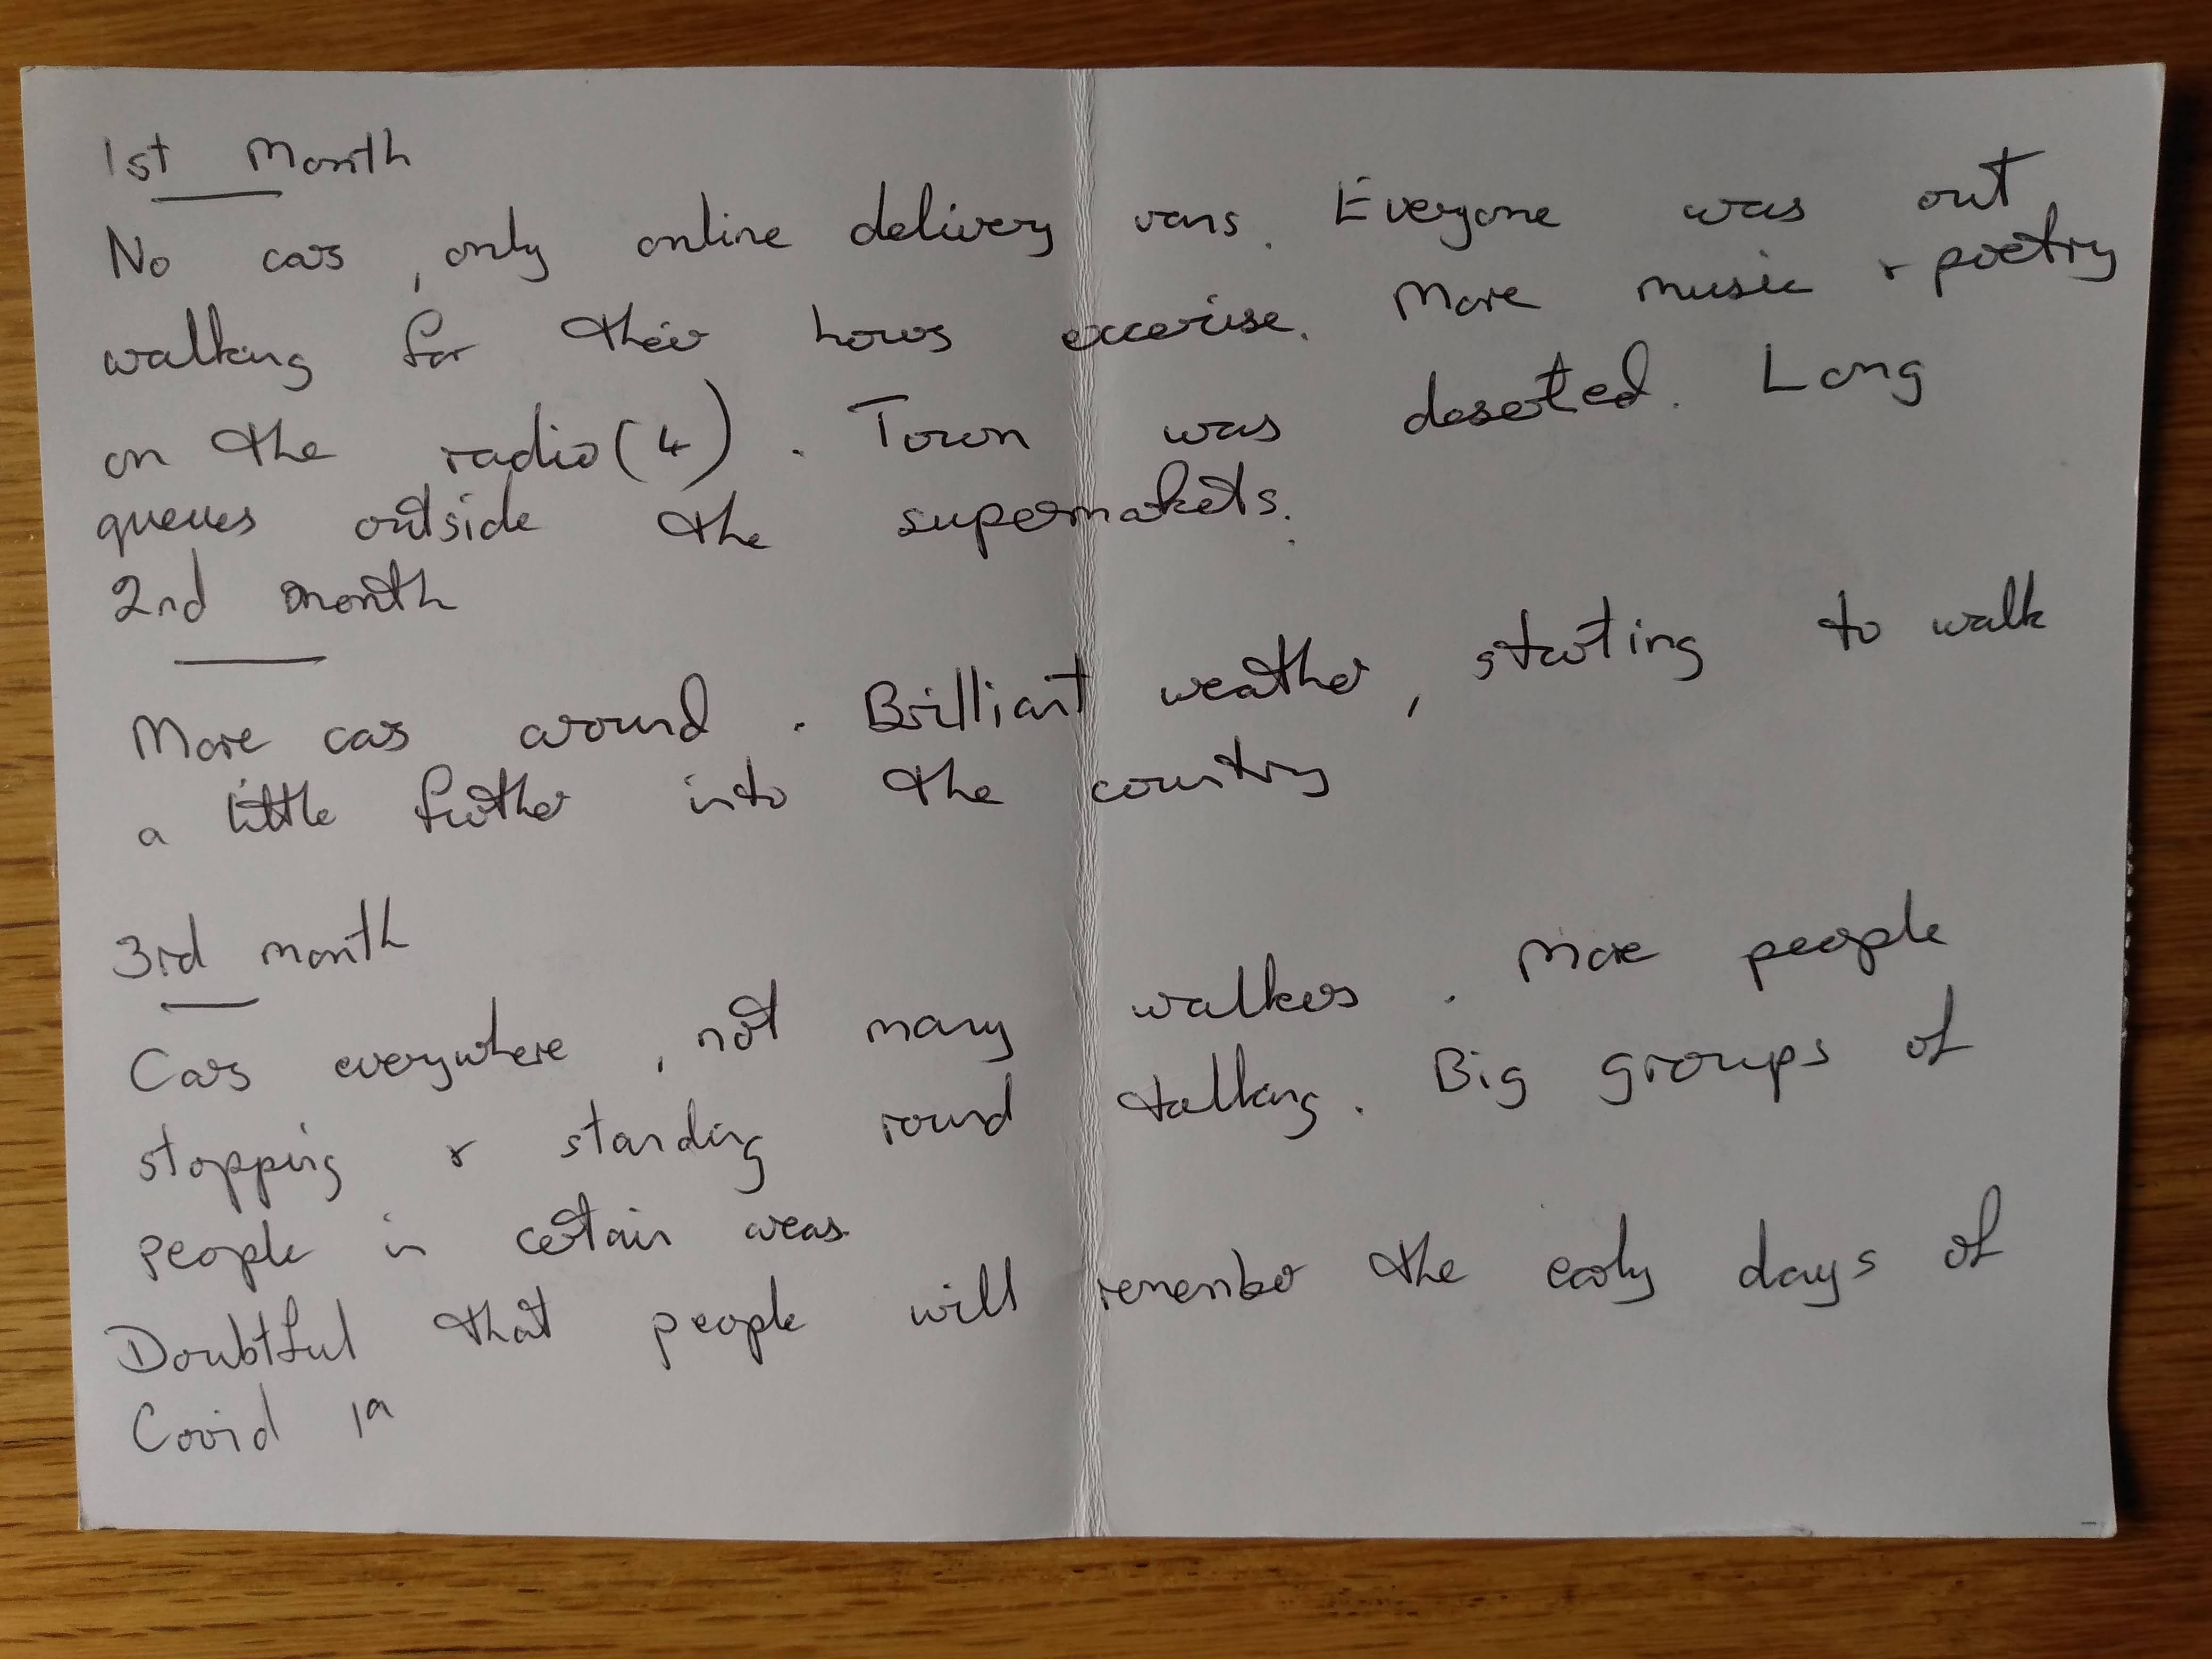 1st Month
No cars, only online delivery vans. Everyone was out
walking for their hours excerise. More music & poetry
on the radio (4). Town was deserted. Long
queues outside the supermarkets.
2nd month
More cars around. Brilliant weather, starting to walk
a little further into the country
3rd month
Cars everywhere, not many walkers. More people
stopping & standing round talking. Big groups of
people in certain areas.
Doubtful that people will remember the early days of
Covid 19